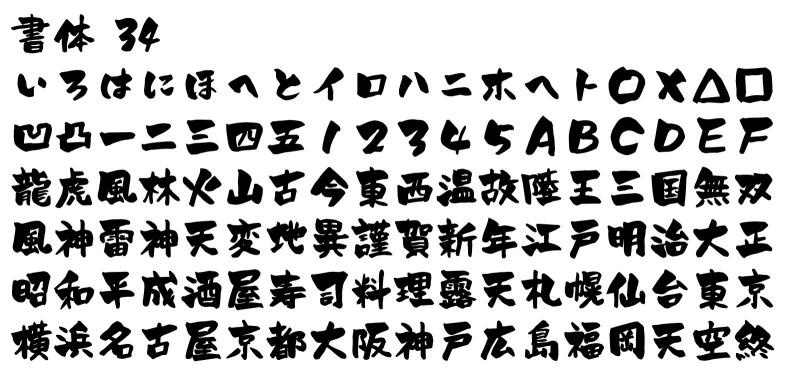 書体 34
いろはにほへとイロハニホヘト○×△□
凹凸一二三四五12345ABCDEF
龍虎風林火山古今東西温故陸王三国無双
風神雷神天変地異謹賀新年江戸明治大正
昭和平成酒屋寿司料理露天札幌仙台東京
横浜名古屋京都大阪神戸広島福岡天空終